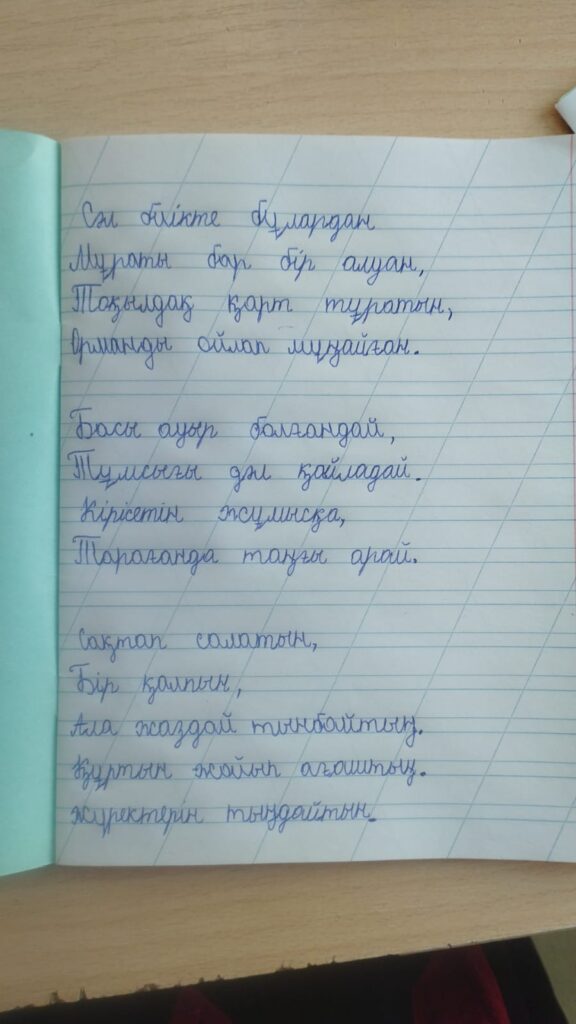 Сәл биікте бұлардан
Мұраты бар бір алуан,
Тоқылдақ қарт тұратын,
Орманды ойлап мұңайған.
Басы ауыр болғандай,
Тұмсығы дәл қайладай.
Кірісетін жұмысқа,
Тарағанда таңғы арай.
Сақтап салатын,
Бір қалпын,
Ала жаздай тынбайтың.
Құртын жойып ағаштың.
Жүректерін тыңдайтын.